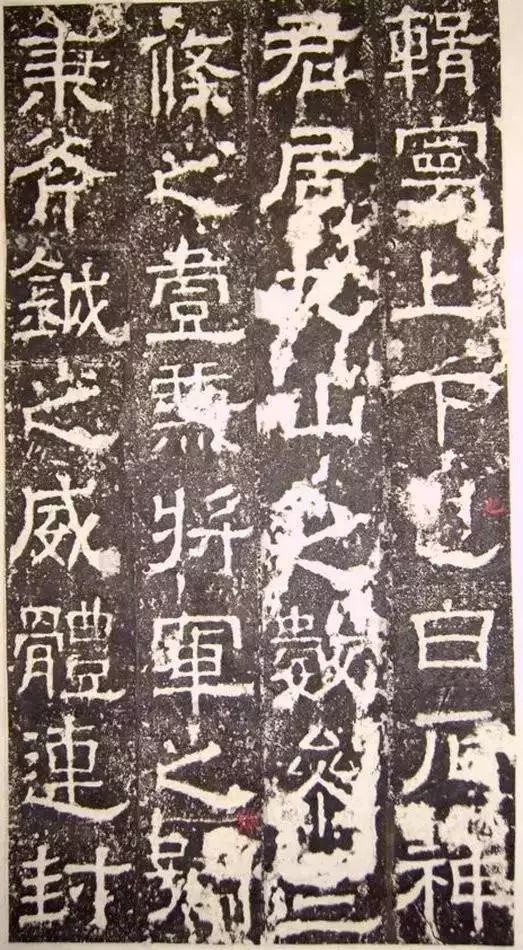 輯寧上下也白石神
君居九山之數參三
條之壹兼將軍之號
秉斧鉞之威體連封